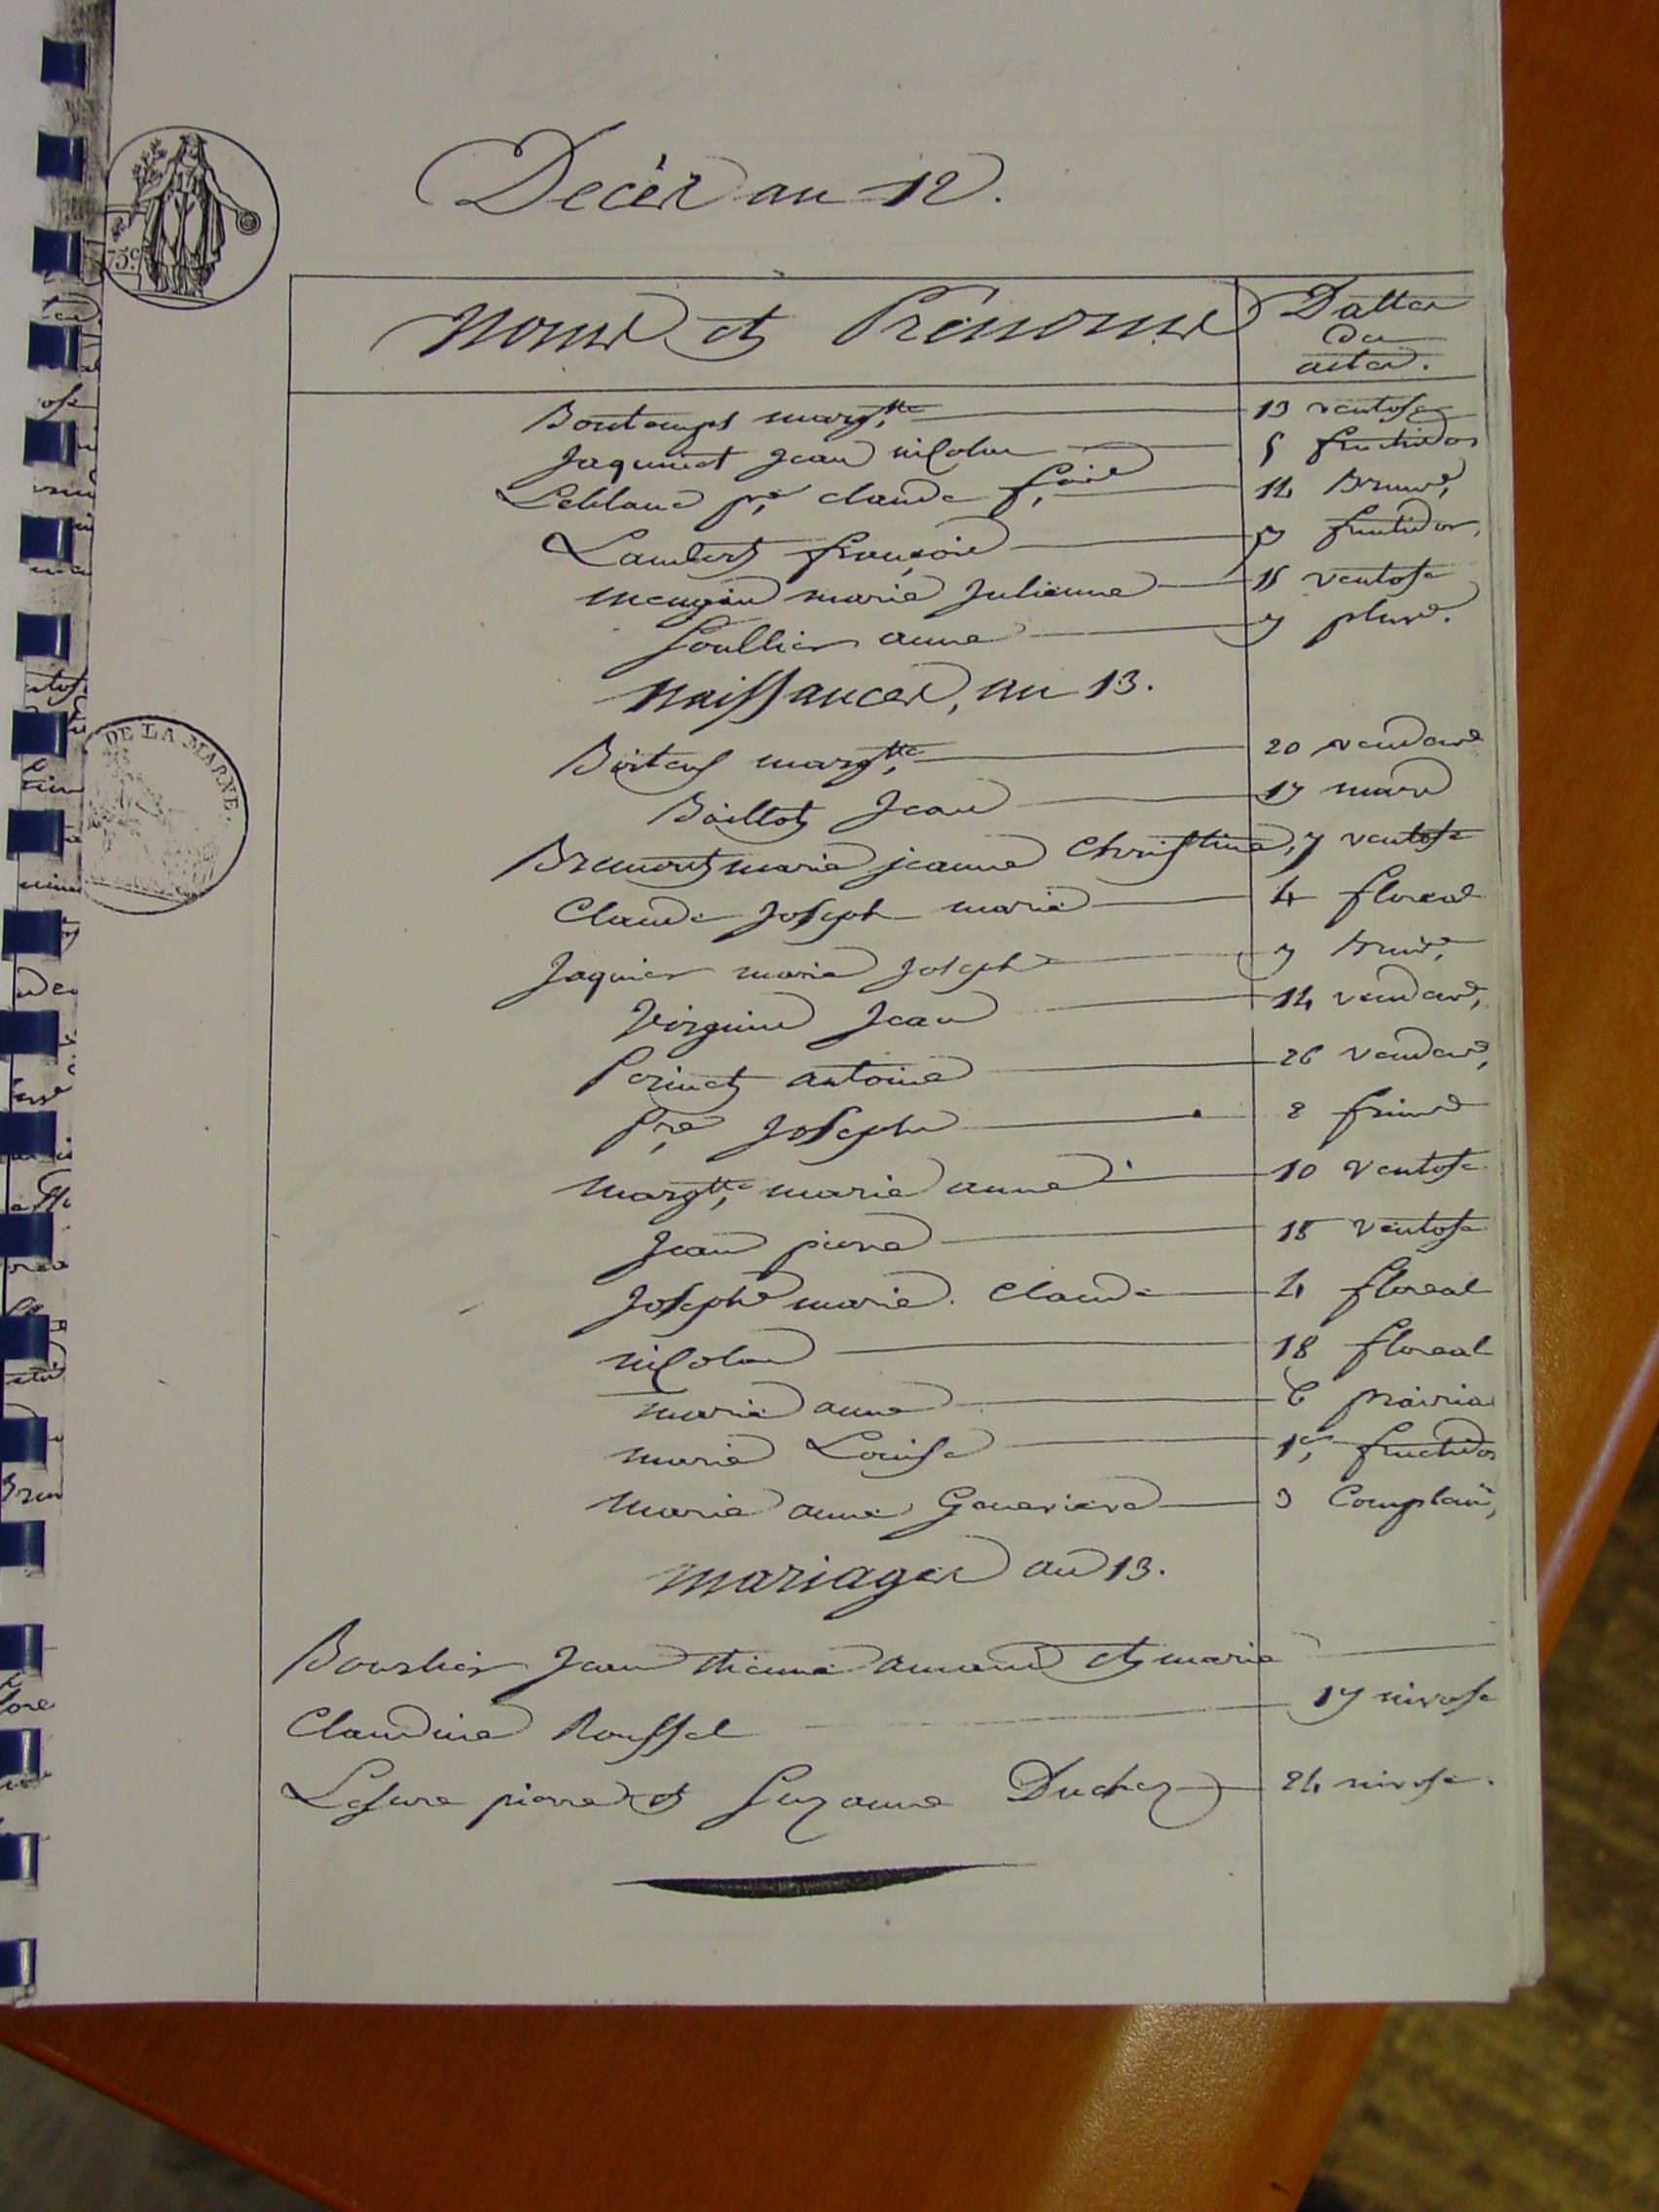 Decès an 12.
75c
Noms et Prenoms
Dattes
des
actes.
Bontemps margtte 13 ventose
Jaquinet Jean nicolas 5 fructidor
Leblanc pre claude fois 14 Brure,
Lambert françois fructidor,
mengin marie Julienne 15 ventose
Soullier anne 7 pluve.
Naissances, an 13.
DE LA MARNE.
margtte 20 vendre
Baillot Jean 17 mars
Bremont marie jeanne Christine, 7 ventose
Claude Joseph marie 4 floreal
Jaquier marie Joseph 7 Brure,
Virginie Jean 14 vendre,
Perinet antoine 26 vendre,
Pre Joseph 2 frimre
margtte marie anne 10 ventose
Jean pierre 15 ventose
Joseph marie. Claude 4 floreal
nicolas 18 floreal
marie anne 6 prairial
marie Louise 1er fructidor
Marie anne Genevieve 3 Complaire,
Mariages an 13.
Jean etienne amand et marie
Claudine Roussel 17 nivose
Lesure pierre et Suzanne Duchez 24 nivose.